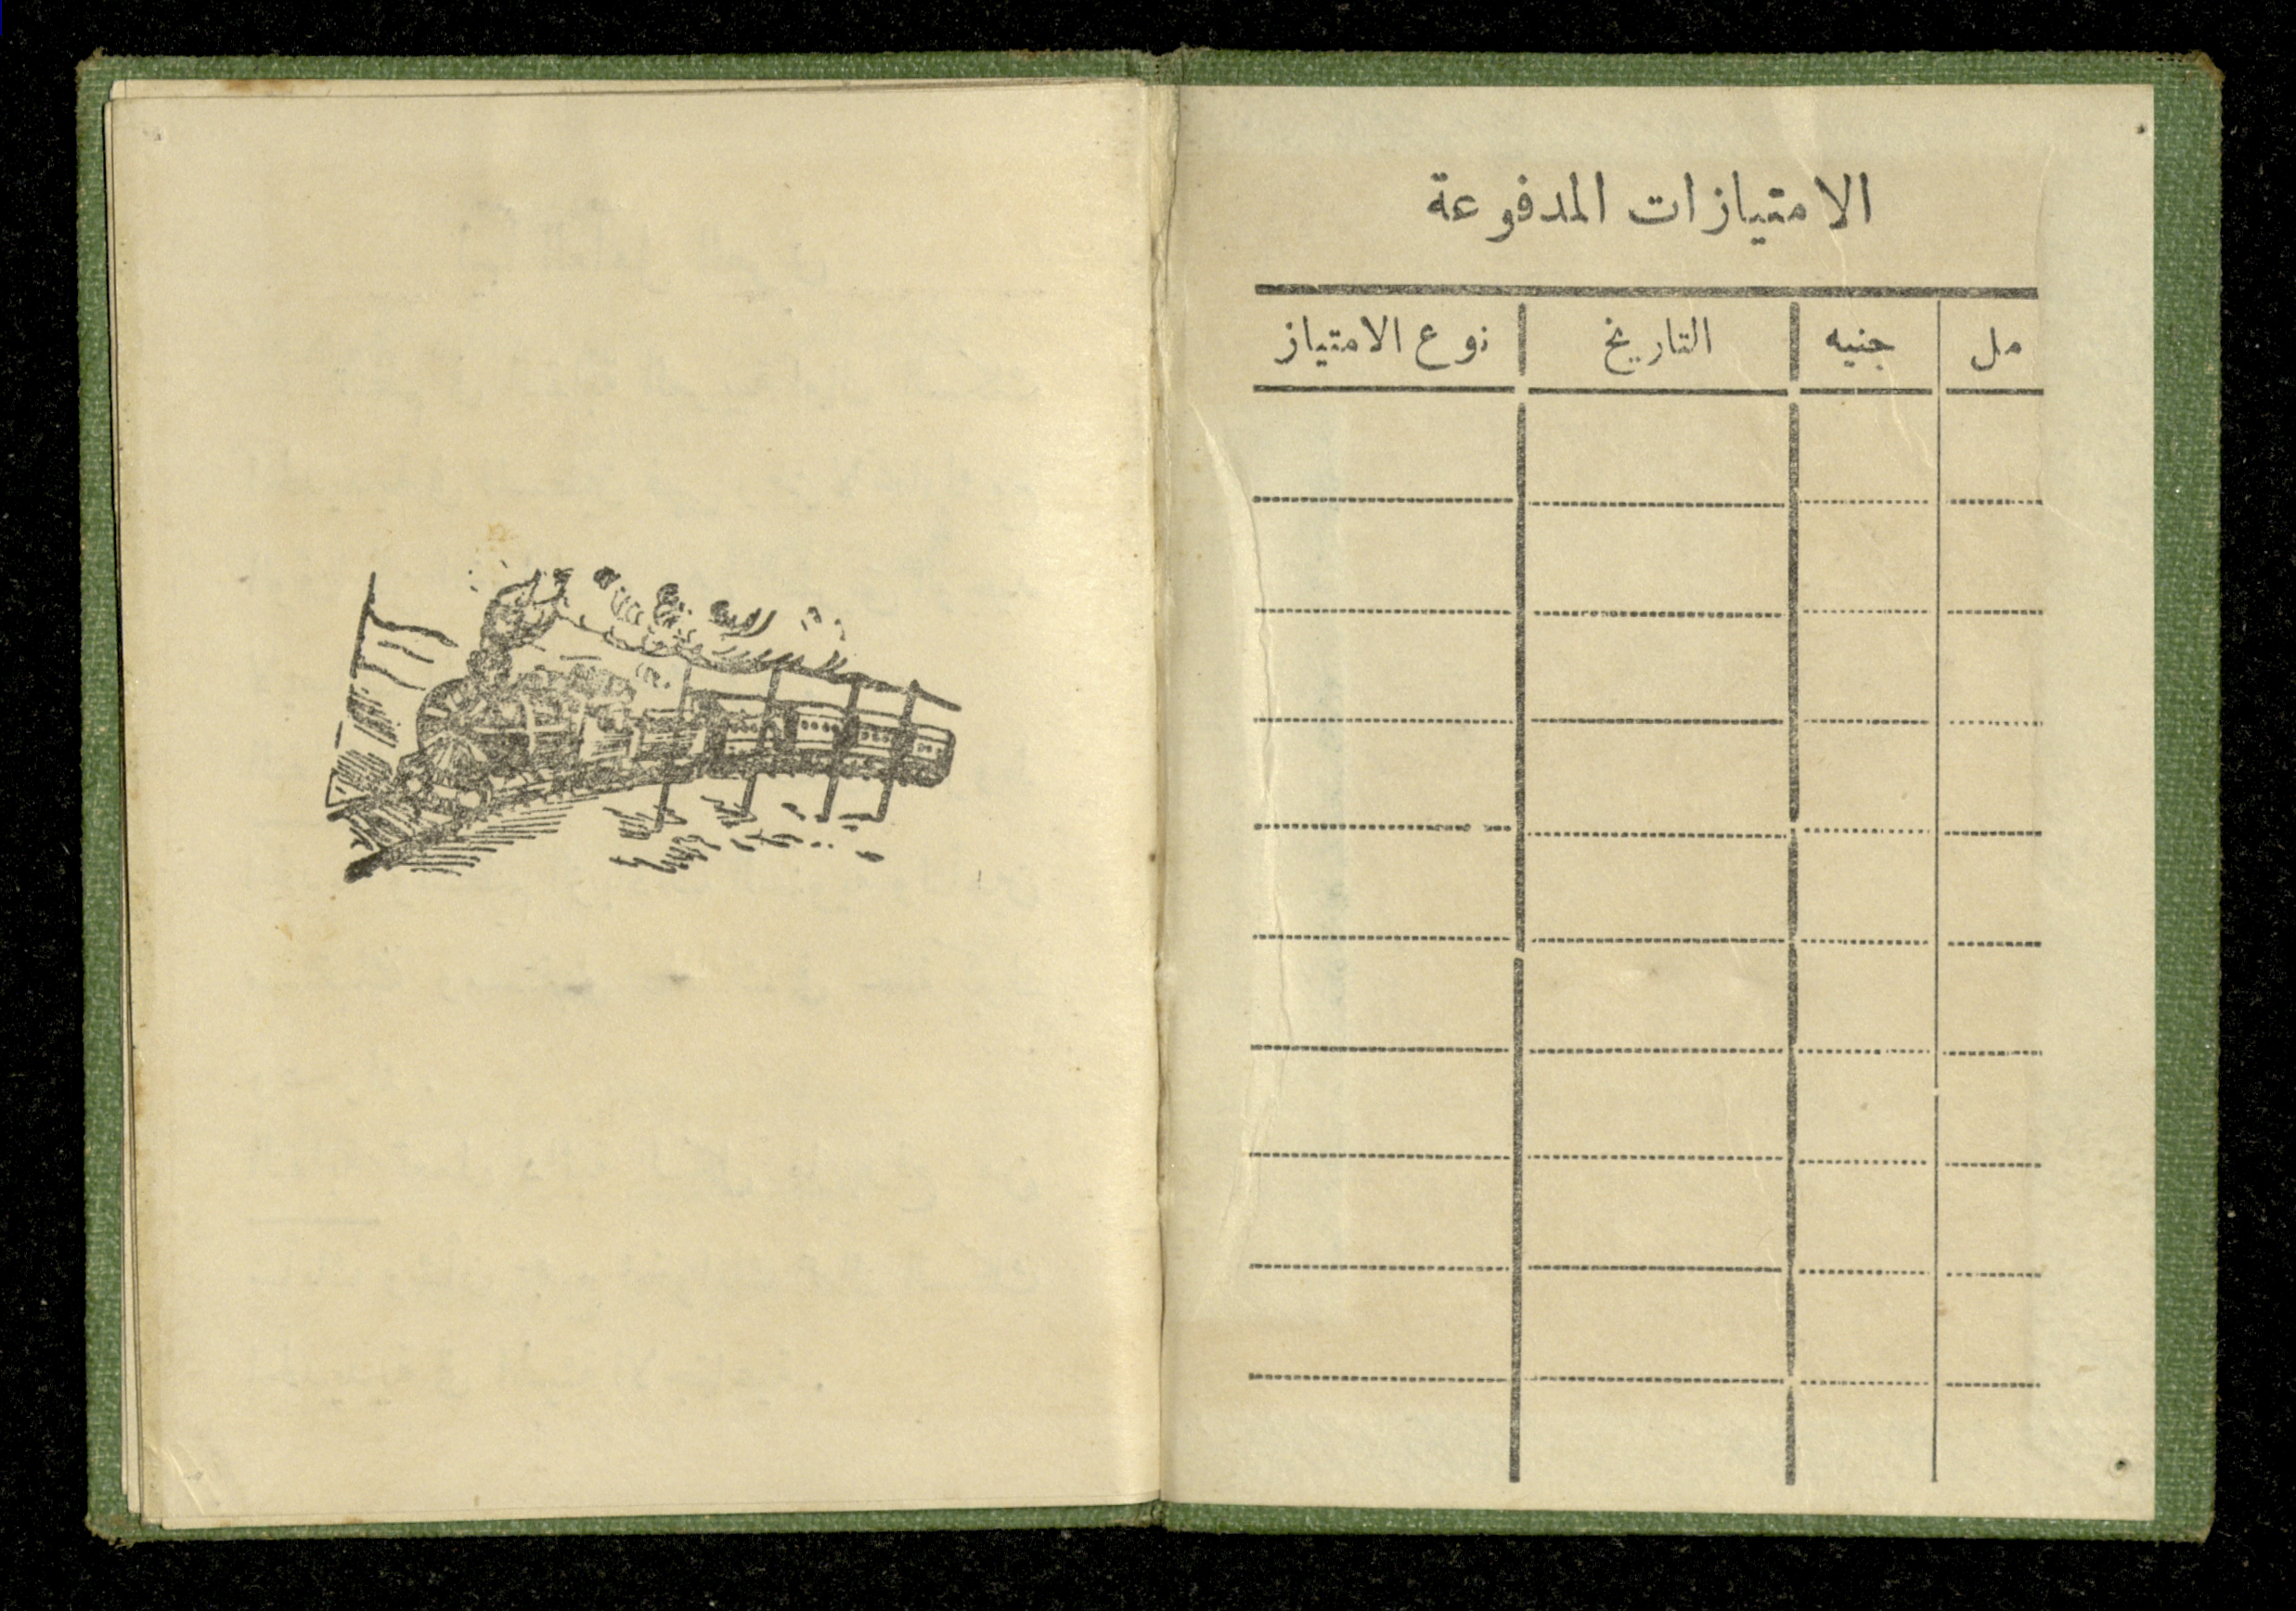 الامتيازات المدفوعة
مل جنيه التاريخ نوع الامتياز